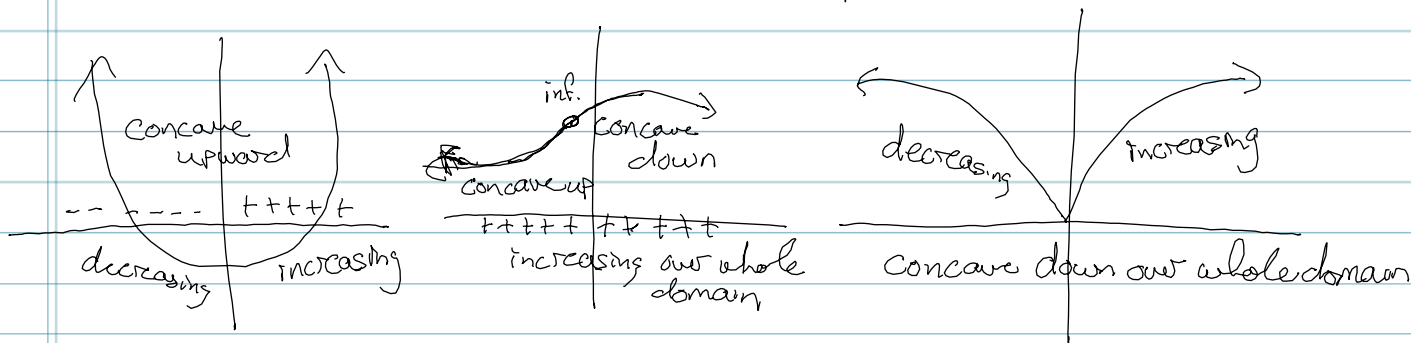 concave
upward
-- - - - - - + + + + +
decreasing
increasing
inf.
concave
down
concave up
+ + + + + + + + + +
increasing over whole
domain
decreasing
increasing
concave down over whole domain